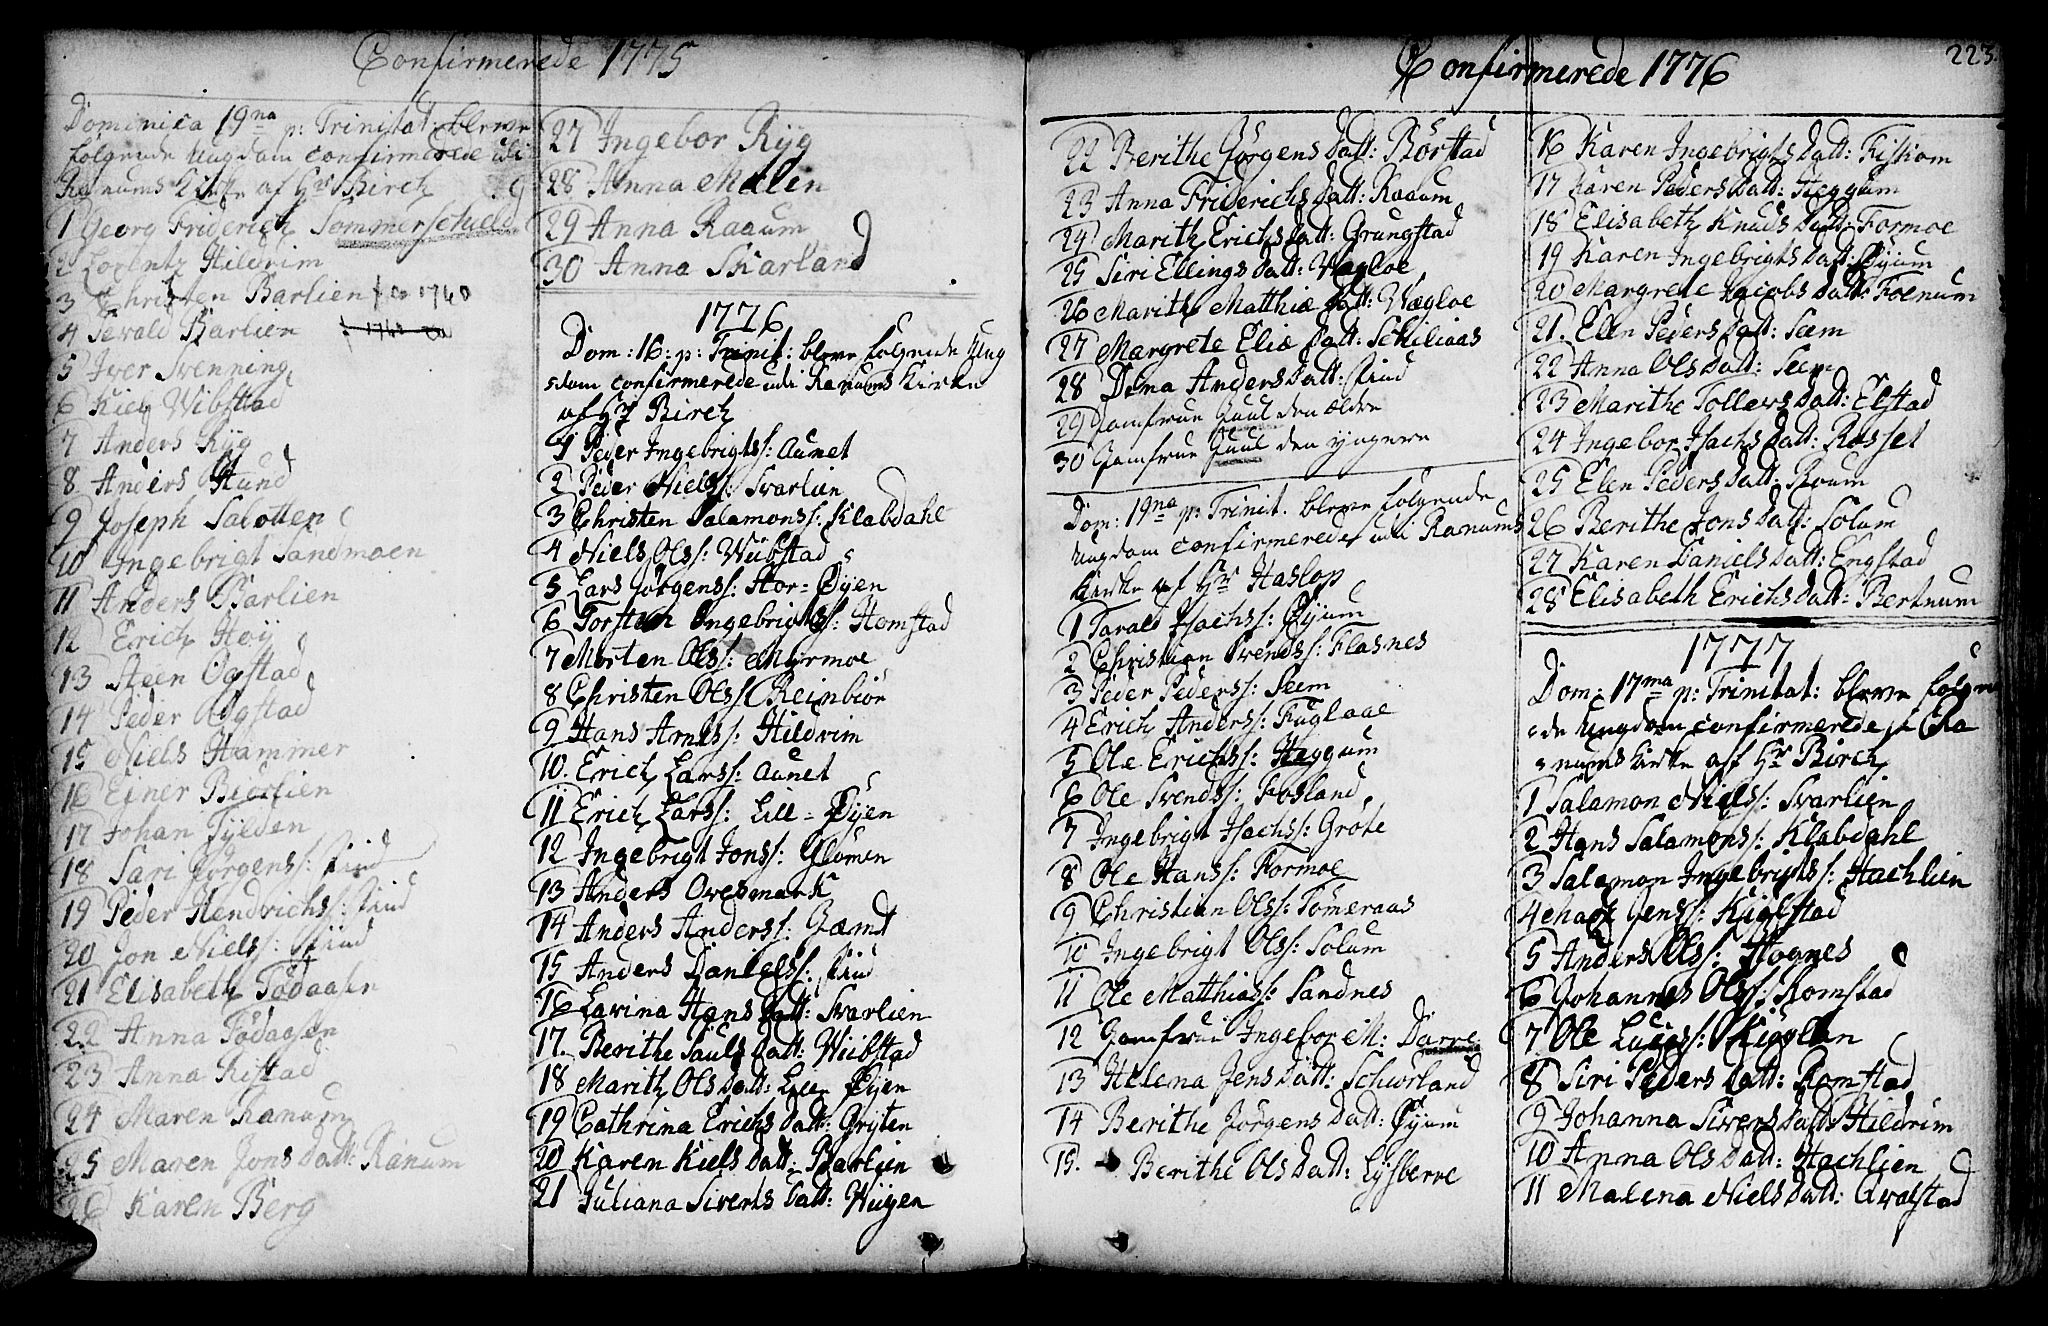 Confirmerede 1775
Dominica 19na p: Trinitat: bleve
følgende Ungdom confirmerede udi
Ranums Kirke af Hr Birch
1 Georg Friderich Sommerschield
2 Lorentz Hildrim
3 Christen Barlien f Ao 1760
4 Sevald Barlien
5 Iver Svenning
6 Kiel Wibstad
7 Anders Ryg
8 Anders Hund
9 Joseph
10 Ingebrigt Sandmoen
11 Anders Barlien
12 Erich Høy
13 Steen Ogstad
14 Peder Ogstad
15 Niels Hammer
16 Einer Biørlien
17 Johan Tylden
18 Jørgens:
19 Peder Hendrichs:
20 Jon Niels:
21 Elisabeth Tødaasen
22 Anna Tødaasen
23 Anna Ristad
24 Maren Ranum
25 Maren Jons Datt: Ranum
26 Karen Berg
27 Ingebor Ryg
28 Anna Malen
29 Anna Raaum
30 Anna Skarland
1776
Dom: 16: p: Trinit: bleve følgende Ung
dom confirmerede udi Ranums Kirke
af Hr Birch
1 Peder Ingebrigts: Aunet
2 Peder Niels: Svarlien
3 Christen Salamons: Klabdahl
4 Niels Ols: Wiibstad
5 Lars Jørgens: Stor-Øyen
6 Torsten Ingebrigts: Homstad
7 Morten Ols: Myrmoe
8 Christen Ols: Reinbiør
9 Hans Arnts: Hildrim
10. Erich Lars: Aunet
11 Erich Lars: Lill-Øyen
12 Ingebrigt Jons: Glømen
13 Anders Overmark
14 Anders Anders: Gæmt
15 Anders Daniels:
16 Lavina Hans Datt: Svarlien
17. Berithe Pauls Datt: Wiibstad
18 Marith Ols Datt: Lill Øyen
19 Cathrina Erichs Datt: Gryten
20 Karen Kiels Datt: Barlien
21 Juliana Siverts Datt: Wiigen
Confirmerede 1776
223
22 Berithe Jørgens Datt: Børstad
23 Anna Friderichs Datt: Raaum
24 Marith Erichs Datt: Grungstad
25 Siri Ellings Datt: Wagloe
26 Marith Matthiæ Datt: Wægloe
27 Margrete Eliæ Datt: Schiliaas
28 Anders Datt:
29 Jomfrue Juul den ældre
30 Jomfrue Juul den yngere
Dom: 19na p: Trinit. bleve følgende
Ungdom confirmerede udi Ranums
Kirke af Hr Haslop
1 Tarald Isachs: Øyum
2 Christian Svends: Flasnes
3 Peder Peders: Seem
4 Erich Anders: Fuglaae
5 Ole Erichs: Heggum
6 Ole Svends: Fosland
7 Ingebrigt Isachs: Grote
8 Ole Hans: Formoe
9 Christian Ols: Tømeraas
10 Ingebrigt Ols: Solum
11 Ole Matthias: Sandnes
12 Jomfrue Ingebor M: Darre
13 Helena Jens Datt: Schiørland
14 Berithe Jørgens Datt: Øyum
15. Berithe Ols Datt: Lysberre
16 Karen Ingebrigts Datt: Fiskom
17 Karen Peders Datt: Heggum
18 Elisabeth Knuds Datt: Formoe
19 Karen Ingebrigts Datt: Øyum
20 Margrete Jacobs Datt: Foenum
21. Elen Peders Datt: Seem
22 Anna Ols Datt: Seem
23 Marithe Tollevs Datt: Elstad
24 Ingebor Isachs Datt: Rosset
25 Elen Peders Datt: Roum
26 Berithe Jons Datt: Solum
27 Karen Daniels Datt: Engstad
28 Elisabeth Erichs Datt: Bertnum
1777
Dom: 17ma p: Trinitat: bleve følgen
de Ungdom confirmerede i Ra
nums Kirke af Hr Birch
1 Salamon Niels: Svarlien
2 Hans Salamons: Klabdahl
3 Salamon Ingebrigts: Hachlien
4 Jens:
5 Anders Ols: Høgnes
6 Johannes Ols: Romstad
7 Ole Lucas:
8 Siri Peders Datt: Romstad
9 Johanna Sivers Datt: Hildrim
10 Anna Ols Datt: Hachlien
11 Malena Niels Datt: Qvalstad